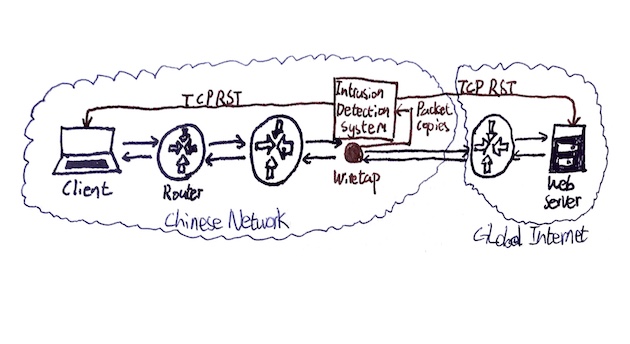 TCP RST
Intrusion
Detection
System
TCP RST
Packet
copies
Client
Router
Wiretap
Web
Server
Chinese Network
Global Internet